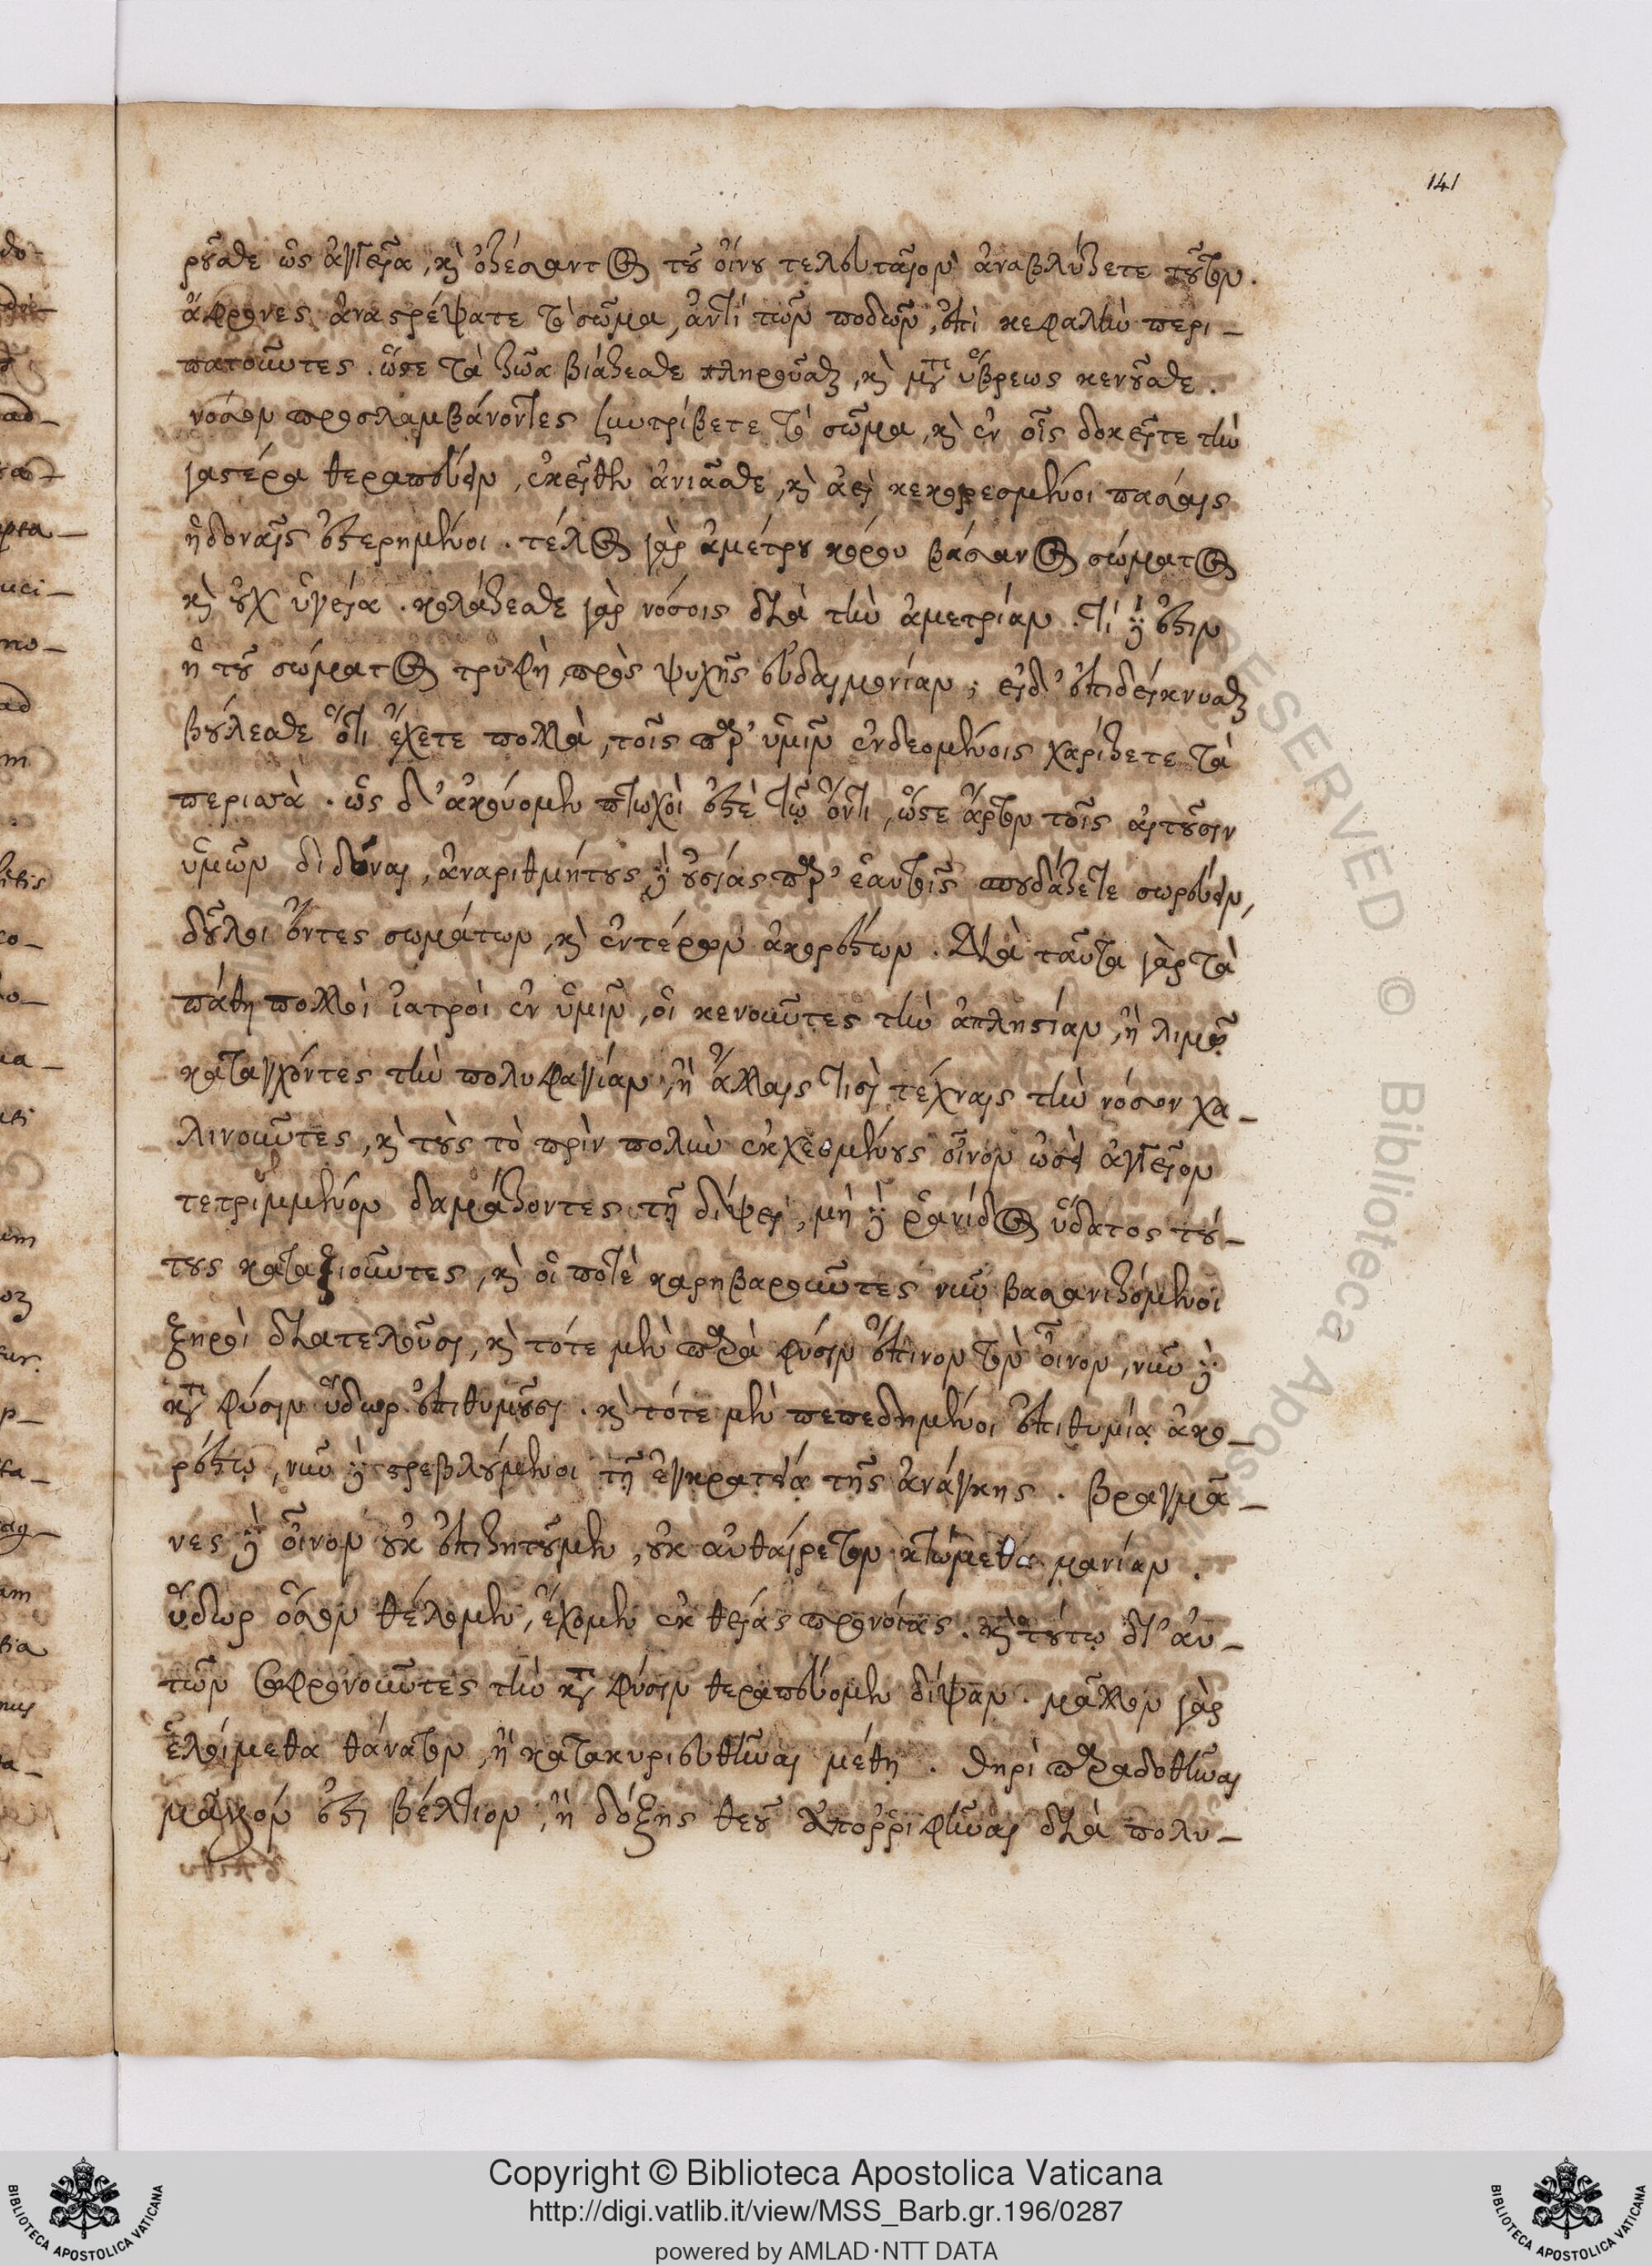 141
ροῦσθε ὡς ἀγγεῖα, καὶ ὀζέσαντος τοῦ οἴνου τελευταῖον ἀναβλύζετε τοῦτον.
ἄφρονες ἀναστρέψατε τὸ σῶμα, ἀντὶ τῶν ποδῶν, ἐπὶ κεφαλὴν περι-
πατοῦντες. ὥστε τὰ ζῶα βιάζεσθε πληροῦσθαι, καὶ μετὰ ὕβρεως κενοῦσθε.
νόσον προσλαμβάνοντες συντρίβετε τὸ σῶμα, καὶ ἐν οἷς δοκεῖτε τὴν
γαστέρα θεραπεύειν, ἐκείθεν ἀνιᾶσθε, καὶ ἀεὶ κεκορεσμένοι πάσαις
ἡδοναῖς ἐστερημένοι. τέλος γὰρ ἀμέτρου κόρου βάσανος σώματος
καὶ οὐχ ὑγεία. κολάζεσθε γὰρ νόσοις διὰ τὴν ἀμετρίαν. τί δέ ἐστιν
ἡ τοῦ σώματος τρυφὴ, πρὸς ψυχῆς εὐδαιμονίαν; εἰ δ' ἐπιδείκνυσθαι
βούλεσθε ὅτι ἔχετε πολλὰ, τοῖς παρ' ὑμῖν ἐνδεομένοις χαρίζετε τὰ
περισσὰ. ὡς δ' ἀκούομεν πτωχοὶ ἐστὲ τῷ ὄντι, ὥστε ἄρτον τοῖς αἰτοῦσιν
ὑμῶν διδόναι, ἀναριθμήτους δὲ οὐσίας παρ' ἑαυτοῖς σπουδάζετε σωρεύειν,
δοῦλοι ὄντες σωμάτων, καὶ ἐντέρων ἀκορέστων. Διὰ ταῦτα γὰρ τὰ
πάθη πολλοὶ ἰατροὶ ἐν ὑμῖν, οἱ κενοῦντες τὴν ἀπληστίαν, ἢ λιμῷ
κατάγχοντες τὴν πολυφαγίαν, ἢ ἄλλαις τισὶ τέχναις τὴν νόσον χα-
λινοῦντες, καὶ τοὺς τὸ πρὶν πολὺν ἐκχεομένους οἶνον ὡσεὶ ἀγγεῖον
τετριμμένον δαμάζοντες τῇ δίψει, μὴ δὲ ῥανίδος ὕδατος τού-
τους καταξιοῦντες, καὶ οἱ ποτὲ καρηβαροῦντες νῦν βασανιζόμενοι
ξηροὶ διατελοῦσι, καὶ τότε μὲν παρὰ φύσιν ἔπινον τὸν οἶνον, νῦν δὲ
κατὰ φύσιν ὕδωρ ἐπιθυμοῦσι. καὶ τότε μὲν πεπεδημένοι ἐπιθυμίᾳ ἀκο-
ρέστῳ, νῦν δὲ στρεβλούμενοι τῇ ἐγκρατείᾳ τῆς ἀνάγκης. Βραγμᾶ-
νες δὲ οἶνον οὐκ ἐπιζητοῦμεν, οὐκ αὐθαίρετον κτώμεθα μανίαν.
ὕδωρ ὅσον θέλομεν, ἔχομεν ἐκ θείας προνοίας. καὶ τούτῳ δι' αὐ-
τῶν σωφρονοῦντες τὴν κατὰ φύσιν θεραπεύομεν δίψαν. μᾶλλον γὰρ
ἑλοίμεθα θάνατον, ἢ κατακυριευθῆναι μέθῃ. θηρὶ παραδοθῆναι
μᾶλλον ἐστὶ βέλτιον, ἢ δόξης θεοῦ ἀπορῥιφῆναι διὰ πολυ-
Copyright © Biblioteca Apostolica Vaticana
http://digi.vatlib.it/view/MSS_Barb.gr.196/0287
powered by AMLAD·NTT DATA